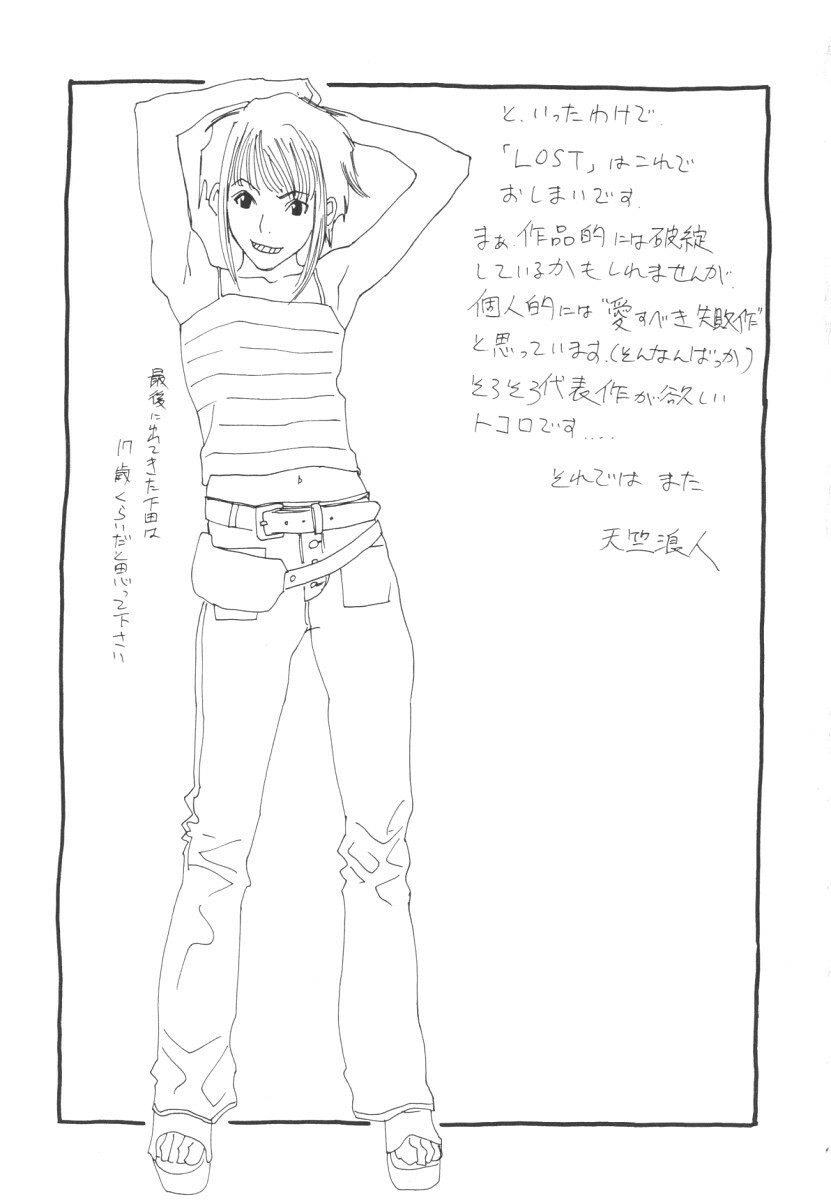 と、いったわけで、
「LOST」はこれで
おしまいです。
まぁ、作品的には破綻
しているかもしれませんが、
個人的には"愛すべき失敗作"
と思っています。(そんなんばっか)
そろそろ代表作が欲しい
トコロです....
それでは また
天竺浪人
最後に出てきた下田は
17歳くらいだと思って下さい